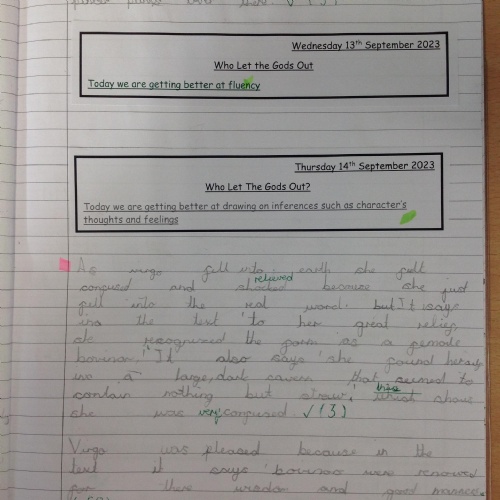 Wednesday 13th September 2023
Who Let the Gods Out
Today we are getting better at fluency
Thursday 14th September 2023
Who Let The Gods Out?
Today we are getting better at drawing on inferences such as character's
thoughts and feelings
As virgo fell into earth she felt
relieved
confused and shocked because she just
fell into the real world. but It says
in the text 'to her great relief,
she recognised the form as a female
bovine." It also says 'she found herself
in a large, dark cavern that seemed to
contain nothing but straw', this shows
she was very confused. √(3)
Virgo was pleased because in the
text it says 'bovines were renowned
for there wisdom and good manners